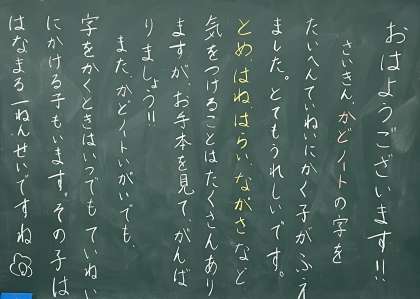 おはようございます!!
さいきん、かどノートの字を
たいへんていねいにかく子がふえ
ました。とてもうれしいです。
とめ、はね、はらい、ながさなど
気をつけることはたくさんあり
ますが、お手本を見て、がんば
りましょう!!
また、かどノートいがいでも、
字をかくときはいつでもていねい
にかける子もいます。その子は
はなまる一ねんせいですね